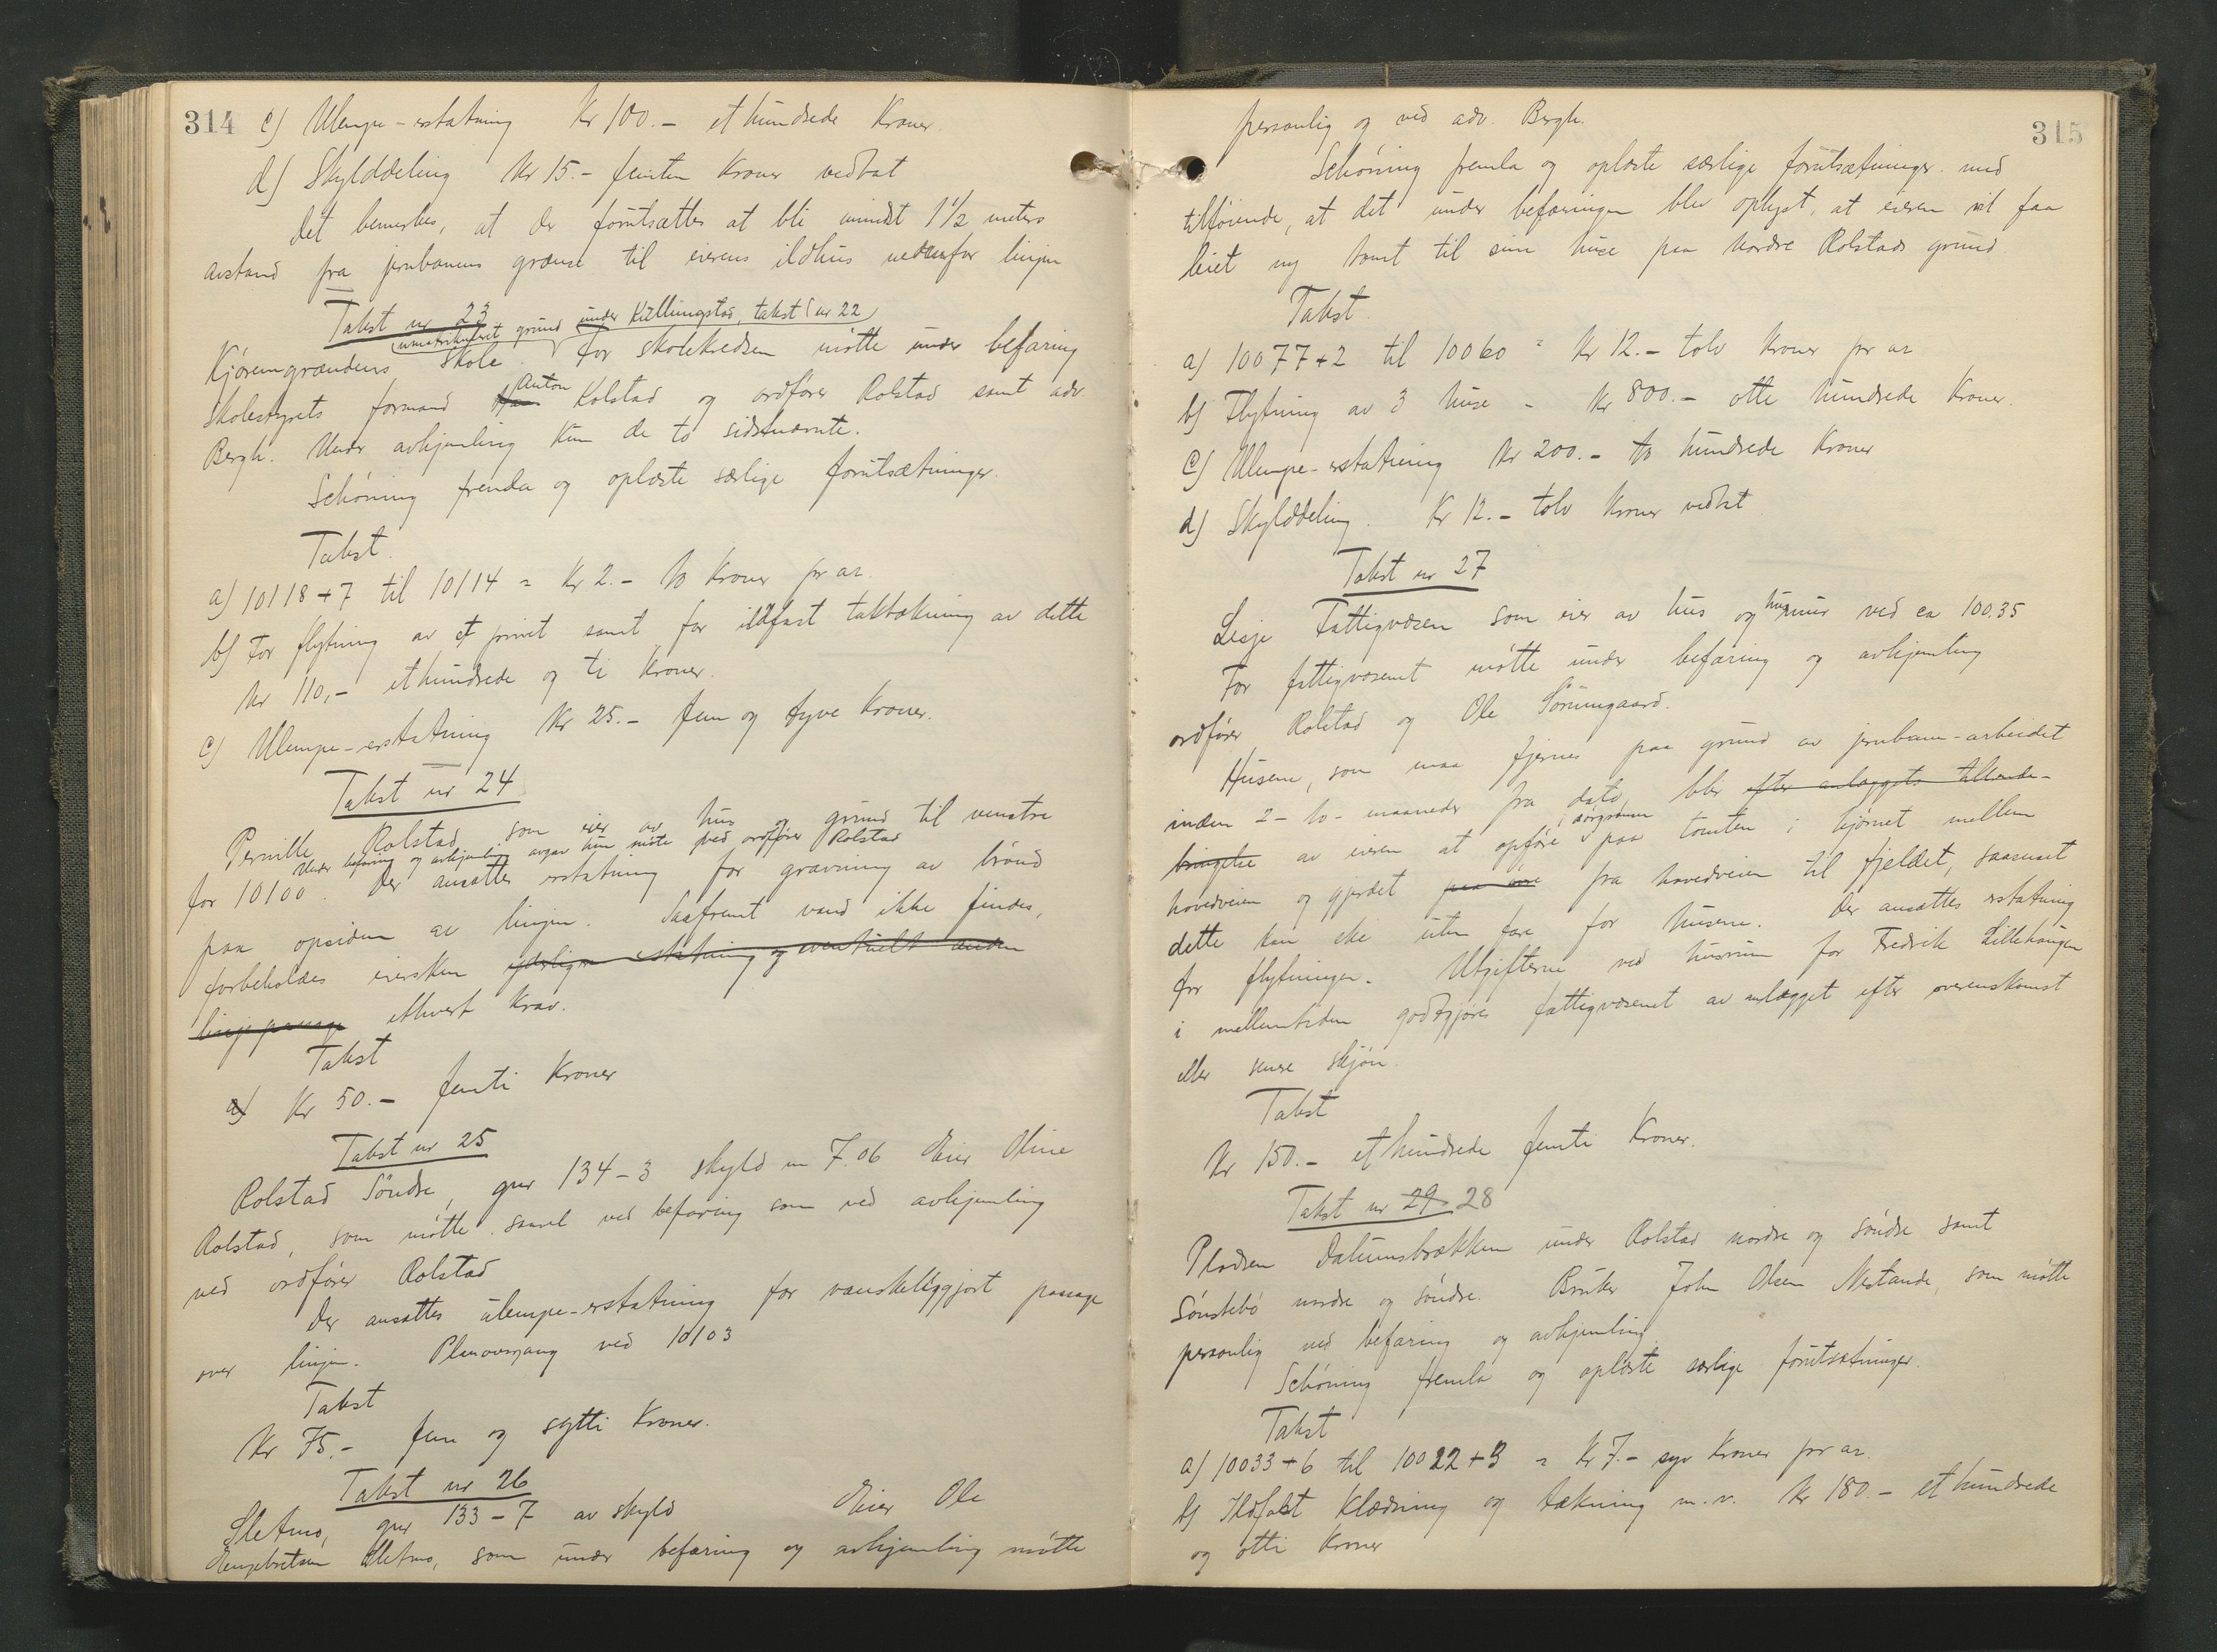 314
c) Ulempe-erstatning Kr 100.- et hundrede Kroner.
d) Skylddeling Kr 15.- femten Kroner vedtat
Det bemerkes, at der forutsættes at bli mindst 1 1/2 meters
avstand fra jernbanens grænse til eierens ildhus nedenfor linjen
Takst nr 23
umatrikulert grund under Kællingstad, takst nr 22
Kjøremgrændens Skole. For skolekredsen møtte under befaring
Skolestyrets formand Anton Kolstad og ordfører Rolstad samt adv.
Bergh. Under avhjemling kun de to sidstnævnte.
Schöning fremla og oplæste særlige forutsætninger.
Takst.
a) 10118+7 til 10114 = Kr 2.- to Kroner pr ar.
b) For flytning av et privet samt for ildfast taktækning av dette
Kr 110,- et hundrede og ti Kroner.
c) Ulempe-erstatning Kr 25.- fem og tyve Kroner.
Takst nr 24
Pernille Rolstad som eier av hus og grund til venstre
Under befaring og avhjemling avgav hun møte ved ordfører Rolstad
for 10100. Der ansættes erstatning for gravning av brønd
paa opsiden av linjen. Saafremt vand ikke findes,
forbeholdes eiersken yderligere erstatning og eventuelt anden
linjepassage ethvert krav.
Takst
a) Kr 50.- femti Kroner
Takst nr 25
Rolstad Søndre, gnr 134-3 skyld m 7.06 Eier Oline
Rolstad, som møtte saavel ved befaring som ved avhjemling
ved ordfører Rolstad
Der ansættes ulempe-erstatning for vanskeliggjort passage
over linjen. Planovergang ved 10103
Takst
Kr 75.- fem og sytti Kroner.
Takst nr 26
Sletmo, gnr 133-7 av skyld Eier Ole
Engebretsen Sletmo, som under befaring og avhjemling møtte
315
personlig og ved adv. Bergh.
Schöning fremla og oplæste særlige forutsætninger med
tilføiende, at det under befaringen blev oplyst, at eieren vil faa
leiet ny tomt til sine huse paa Nordre Rolstads grund.
Takst.
a) 10077+2 til 10060 = Kr 12.- tolv Kroner pr ar
b) Flytning av 3 huse - Kr 800.- otte hundrede Kroner.
c) Ulempe-erstatning Kr 200.- to hundrede Kroner
d) Skylddeling. Kr 12.- tolv Kroner vedtat
Takst nr 27
Lesje Fattigvæsen som eier av hus og husmur ved ca 10035
For fattigvæsenet møtte under befaring og avhjemling
ordfører Rolstad og Ole Sørumgaard.
Husene, som maa fjernes paa grund av jernbane-arbeidet
inden 2- to- maaneder fra dato, blir efter anlæggets tilende-
bringelse av eieren at opføre i Jörgstuen paa tomten i hjørnet mellem
hovedveien og gjerdet paa øvre fra hovedveien til fjeldet, saasnart
dette kan ske uten fare for husene. Der ansættes erstatning
for flytningen. Utgifterne ved husrum for Fredrik Lillehaugen
i mellemtiden godtgjøres fattigvæsenet av anlægget efter overenskomst
eller senere skjøn.
Takst
Kr 150.- et hundrede femti Kroner.
Takst nr 29 28
Pladsen Dalumsbrækken under Rolstad nordre og søndre samt
Sønstebø nordre og søndre. Bruker John Olsen Nestande, som møtte
personlig ved befaring og avhjemling.
Schöning fremla og oplæste særlige forutsætninger.
Takst
a) 10033+6 til 10022+3 = Kr 7.- syv Kroner pr ar.
b) Ildfast klædning og tækning m.v. Kr 180.- et hundrede
og otti Kroner